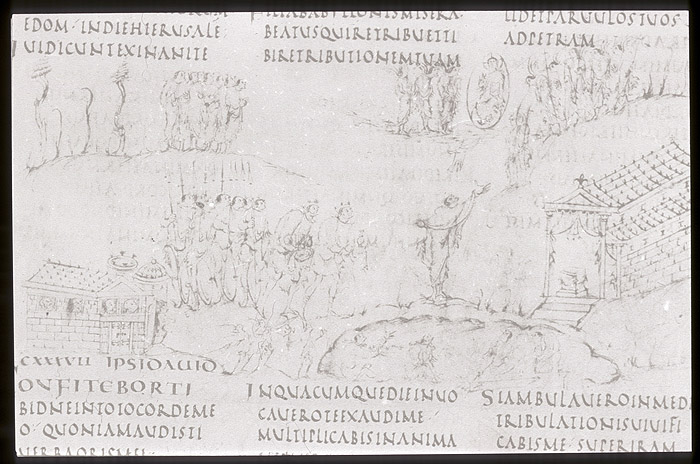 EDOM · INDIEHIERUSALE
UIDICUNTEXINANITE
FILIABABYLONISMISERA·
BEATUSQUIRETRIBUETTI
BIRETRIBUTIONEMTUAM
LIDETPARUULOSTUOS
ADPETRAM·
CXXXVII IPSIDAUID
ONFITEBORTI
BIDNEINTOTOCORDEME
O· QUONIAMAUDISTI
UERBAORISMEI
INQUACUMQUEDIEINUO
CAUEROTEEXAUDIME·
MULTIPLICABISINANIMA
SIAMBULAUEROINMEDI
TRIBULATIONISUIUIFI
CABISME· SUPERIRAM